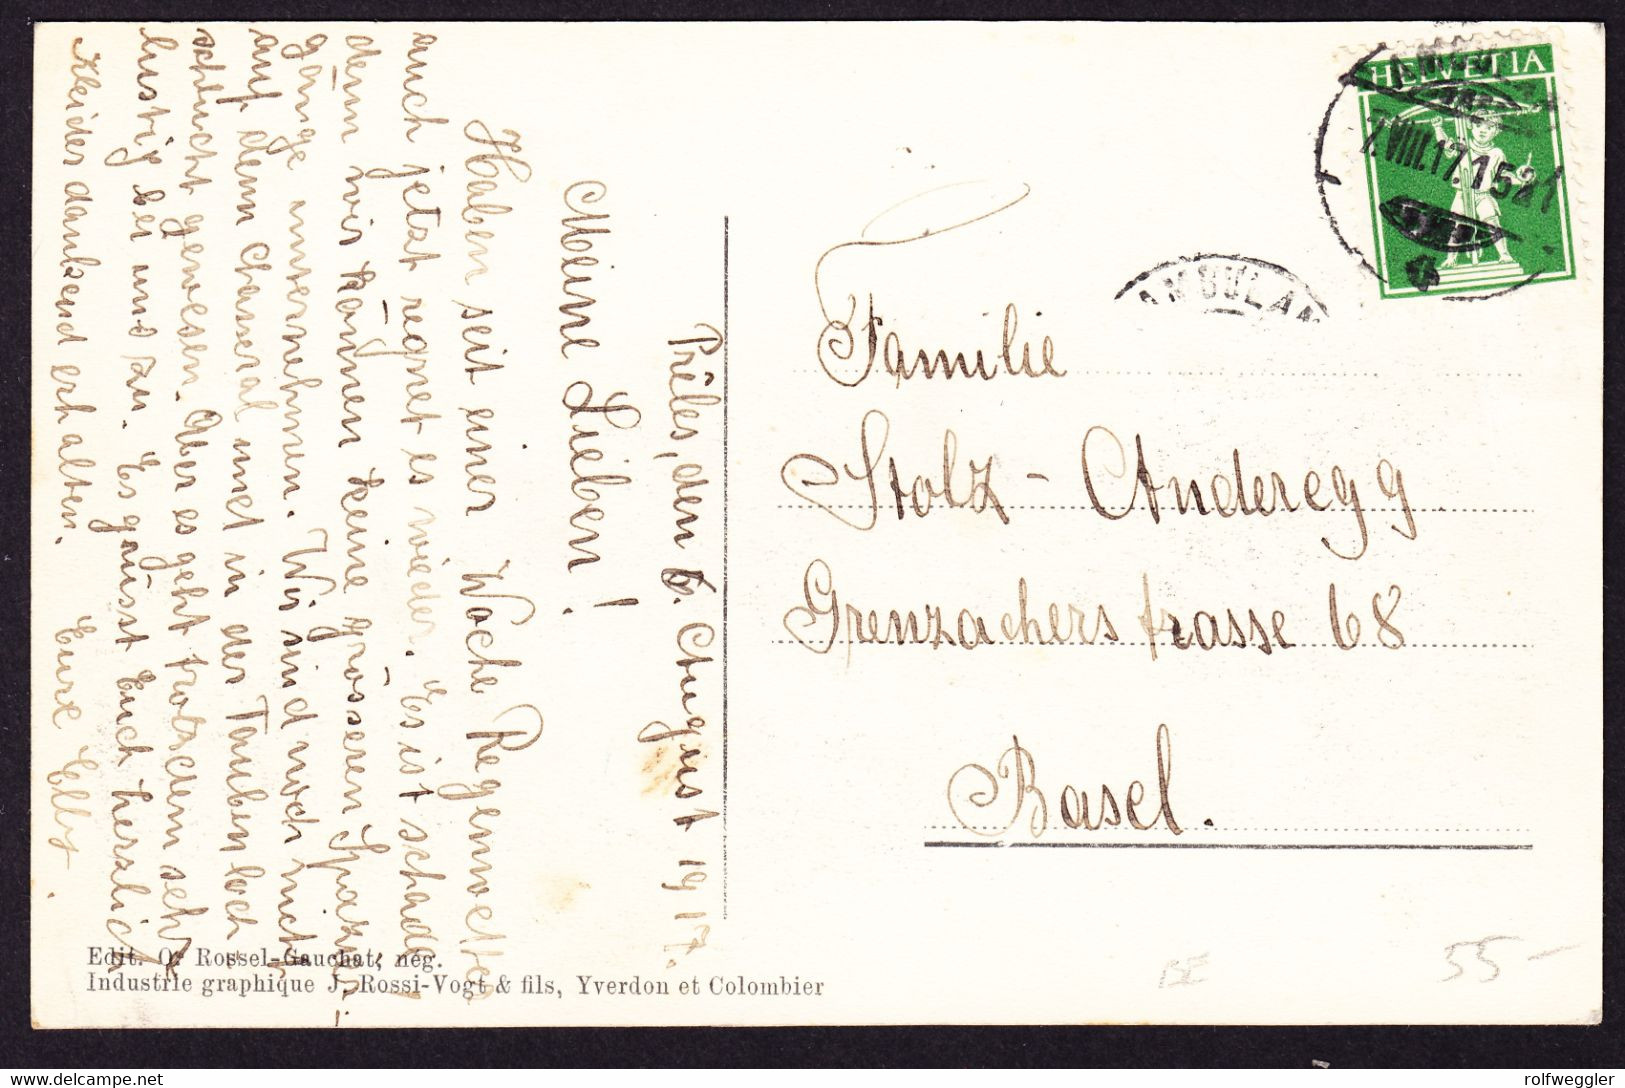 Prêles, den 6. August 1917.
Meine Lieben!
Haben seit einer Woche Regenwetter
auch jetzt regnet es wieder. Es ist schade,
denn wir können keine grösseren Spazier-
gänge unternehmen. Wir sind noch nicht
auf dem Chasseral und in der Taubenloch
schlucht gewesen. Aber es geht trotzdem sehr
lustig bei uns zu. Es grüsst Euch herzlich
Kleider dankend erhalten. Eure Elly.
HELVETIA
AMBULANT
7.VIII.17.1521
AMBULAN
Familie
Stolz-Anderegg
Grenzacherstrasse 68
Basel.
Edit. O. Rossel-Gauchat, nég.
Industrie graphique J. Rossi-Vogt & fils, Yverdon et Colombier
BE
55-
rolfweggler